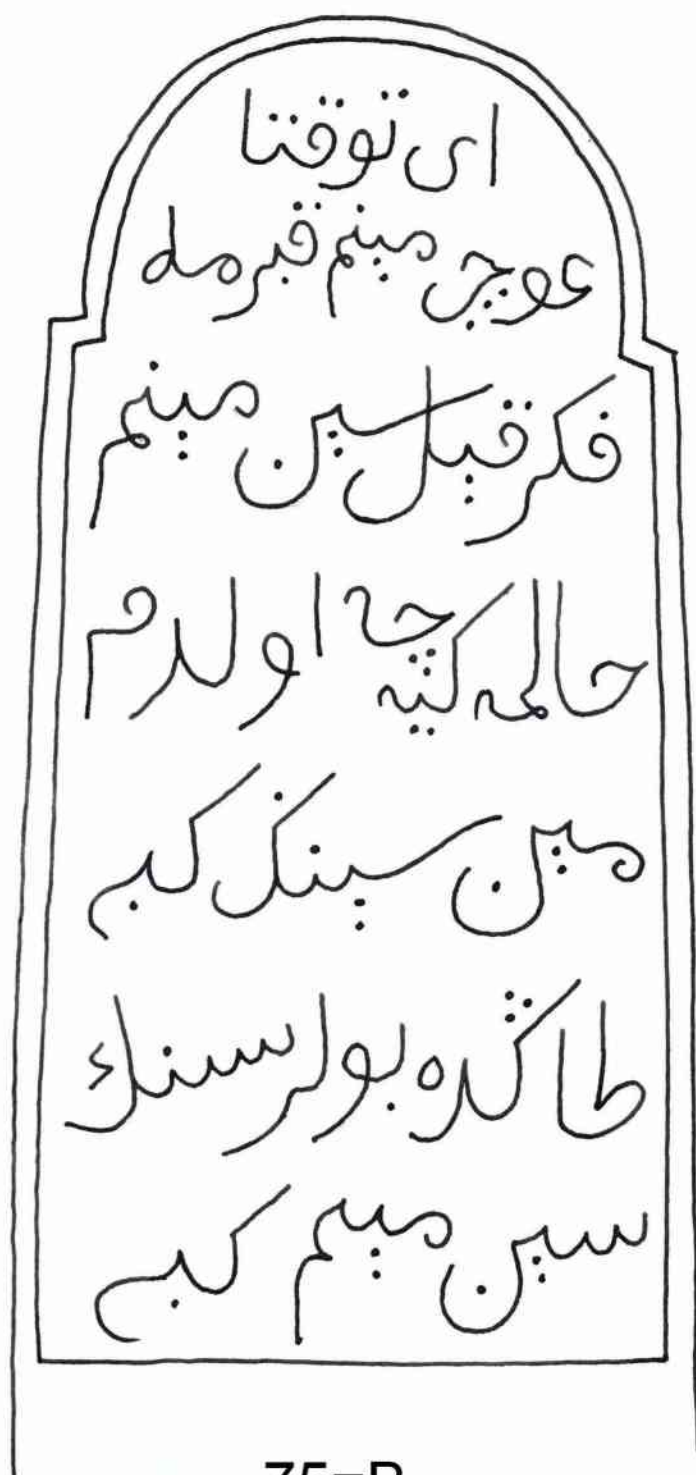 ای توقتا
عوچی مینم قبرمه
فکر قیل سین مینم
حالمه کیچه اولدم
مین سینڭ کبی
طاڭده بولرسنك
سین میم کبی
75-B